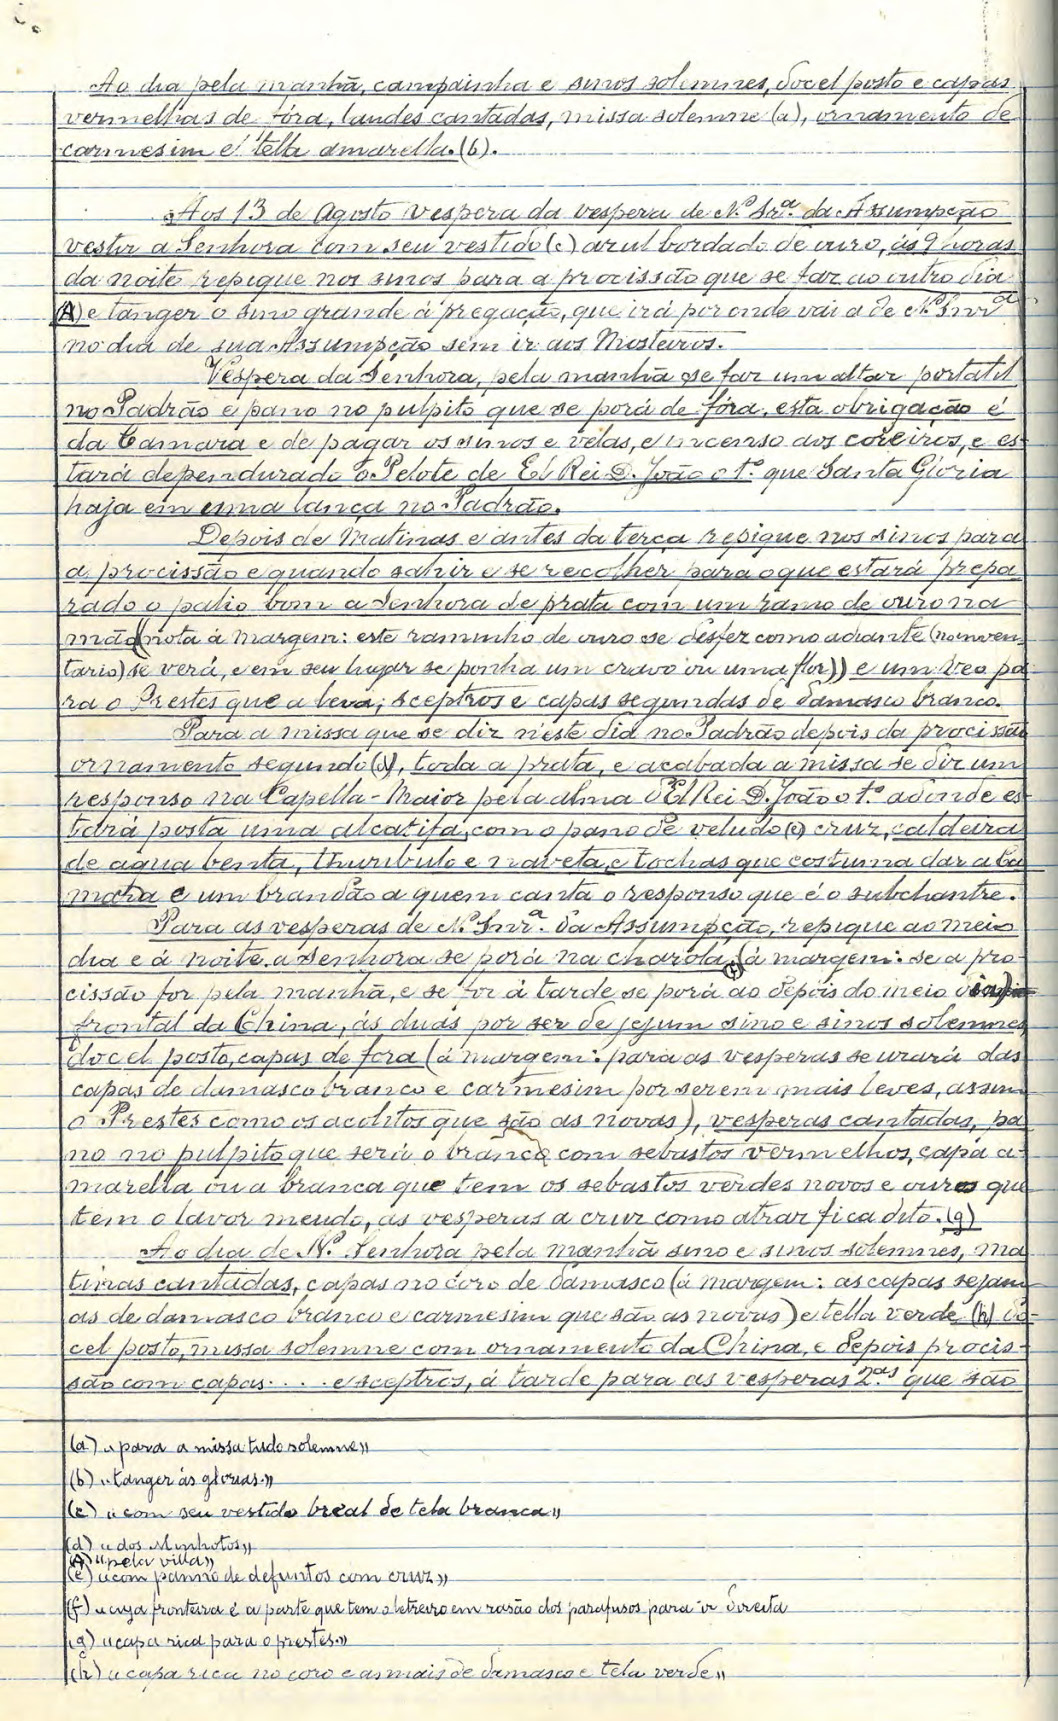 Ao dia pela manhã, campainha e sinos solemnes, docel posto e capas
vermelhas de fóra, laudes cantadas, missa solemne (a), ornamento de
carmesim e tella amarella. (b).
Aos 13 de Agosto vespera da vespera de N.ª Sr.ª da Assumpção
vestir a Senhora com seu vestido (c) azul bordado de ouro, ás 9 horas
da noite repique nos sinos para a procissão que se faz ao outro dia
(A) e tanger o sino grande á pregação, que irá por onde vai a de N.ª Snrª
no dia de sua Assumpção sem ir aos Mosteiros.
Vespera da Senhora, pela manhã se faz um altar portatil
no Padrão e pano no pulpito que se porá de fóra, esta obrigação é
da Camara e de pagar os sinos e velas, e incenso aos coreiros, e es-
tará dependurado o Pelote de El Rei D. João o 1.º que Santa Gloria
haja em uma lança no Padrão.
Depois de Matinas e antes da terça repique nos sinos para
a procissão e quando sahir e se recolher para o que estará prepa-
rado o palio bom a Senhora de prata com um ramo de ouro na
mão (nota á margem: este raminho de ouro se desfez como adiante (no inven-
tario) se verá, e em seu lugar se ponha um cravo ou uma flor)) e um veo pa-
ra o Prestes que a leva; sceptros e capas segundas de damasco branco.
Para a missa que se diz n'este dia no Padrão depois da procissão
ornamento segundo (d), toda a prata, e acabada a missa se diz um
responso na Capella-Maior pela alma d'El Rei D. João o 1.º adonde es-
tará posta uma alcatifa, com o pano de veludo (e) cruz, caldeira
de agua benta, thuribulo e naveta, e tochas que costuma dar a Ca-
mara e um brandão a quem canta o responso que é o subchantre.
Para as vesperas de N.ª Snrª. da Assumpção, repique ao meio
dia e á noite. a Senhora se porá na charola, (f) (á margem: se a pro-
cissão for pela manhã, e se for á tarde se porá ao depois do meio dia)
frontal da China, ás duas por ser de jejum sino e sinos solemnes
docel posto, capas de fora (á margem: para as vesperas se usará das
capas de damasco branco e carmesim por serem mais leves, assim
o Prestes como os acolitos que são as novas), vesperas cantadas, pa-
no no pulpito que será o branco com sebastos vermelhos, capa a-
marella ou a branca que tem os sebastos verdes novos e ouros que
tem o lavor meudo, ás vesperas a cruz como atraz fica dito. (g)
Ao dia de N.ª Senhora pela manhã sino e sinos solemnes, ma-
tinas cantadas, capas no coro de damasco (á margem: as capas sejam
as de damasco branco e carmesim que são as novas) e tella verde (h) do-
cel posto, missa solemne com ornamento da China, e depois procis-
são com capas.... e sceptros, á tarde para as vesperas 2.as que são
(a) «para a missa tudo solemne»
(b) «tanger ás glorias.»
(c) «com seu vestido breal de tela branca»
(d) «dos Minhotos»
(A) «pela villa»
(e) «com panno de defuntos com cruz»
(f) «cuja fronteira é a parte que tem o letreiro em rasão dos parafusos para ir direita
(g) «capa rica para o prestes.»
(h) «capa rica no coro e as mais de damasco e tela verde»